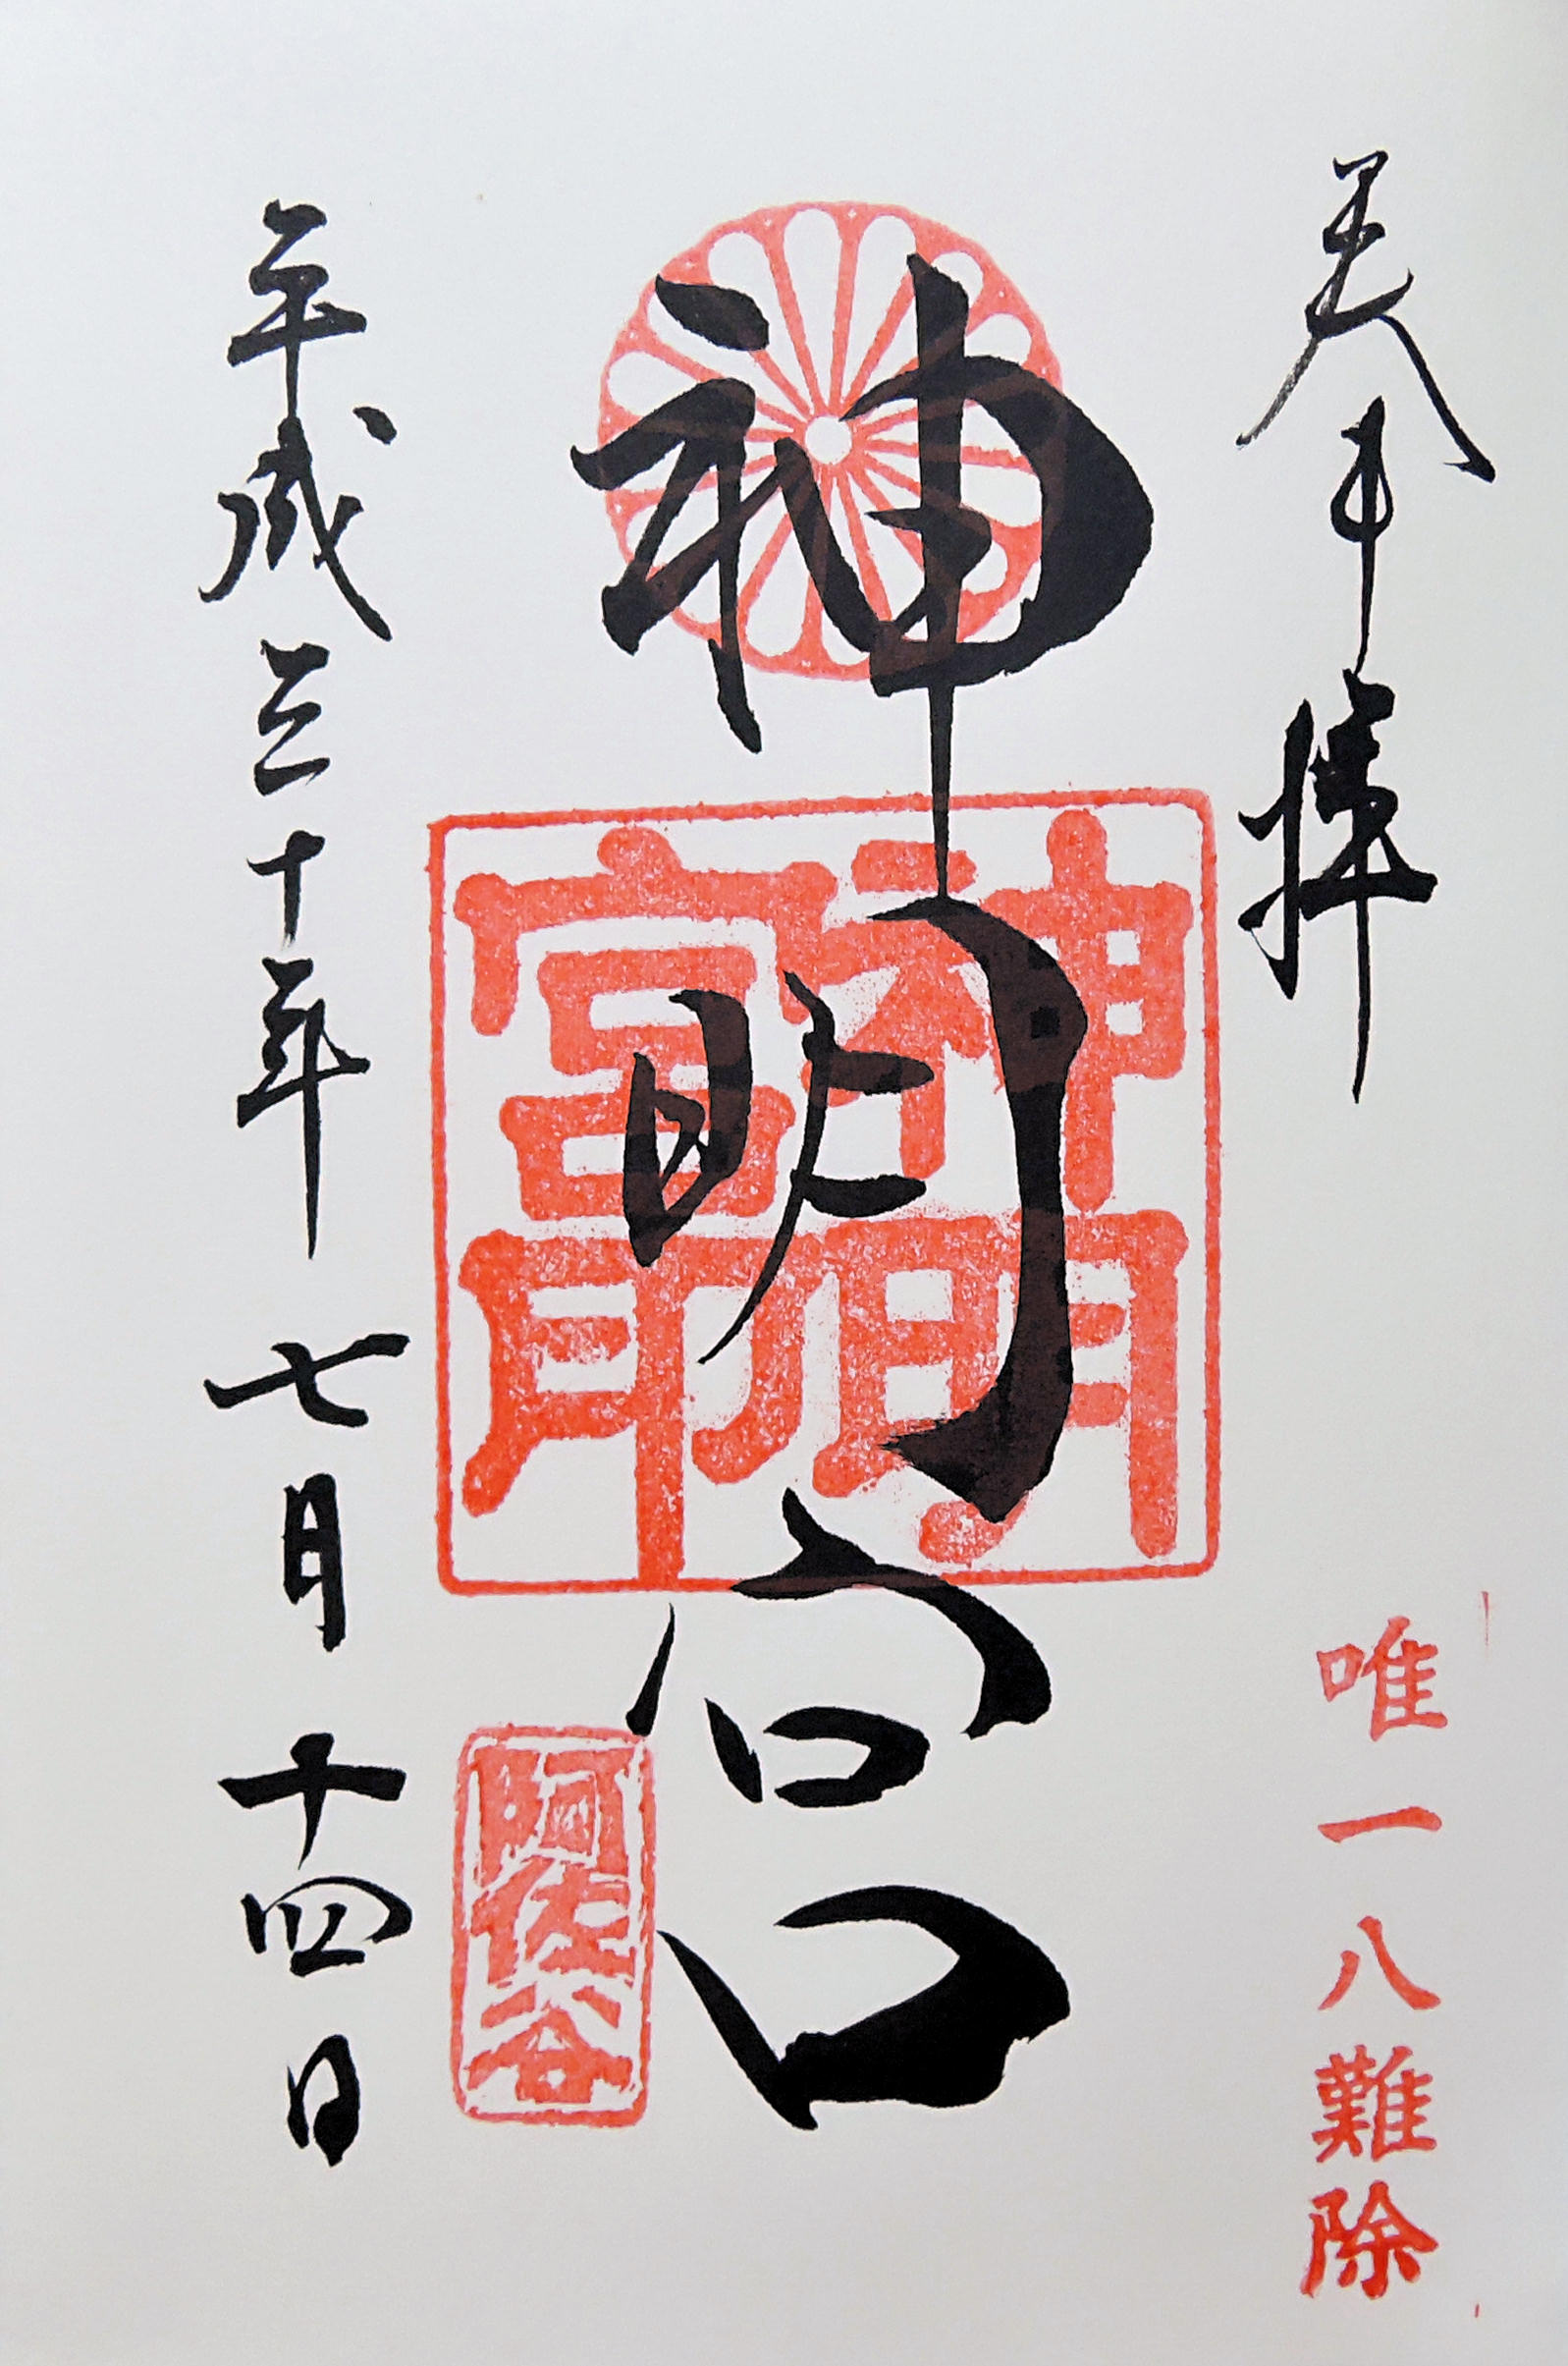 奉拝
唯一八難除
神明宮
神明宮印
阿佐谷
平成三十年 七月十四日